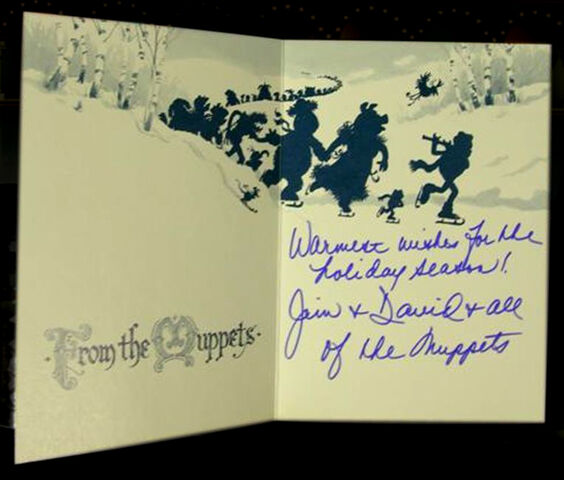 ·From the Muppets·
Warmest wishes for the
holiday season!
Jain & David & all
of the Muppets